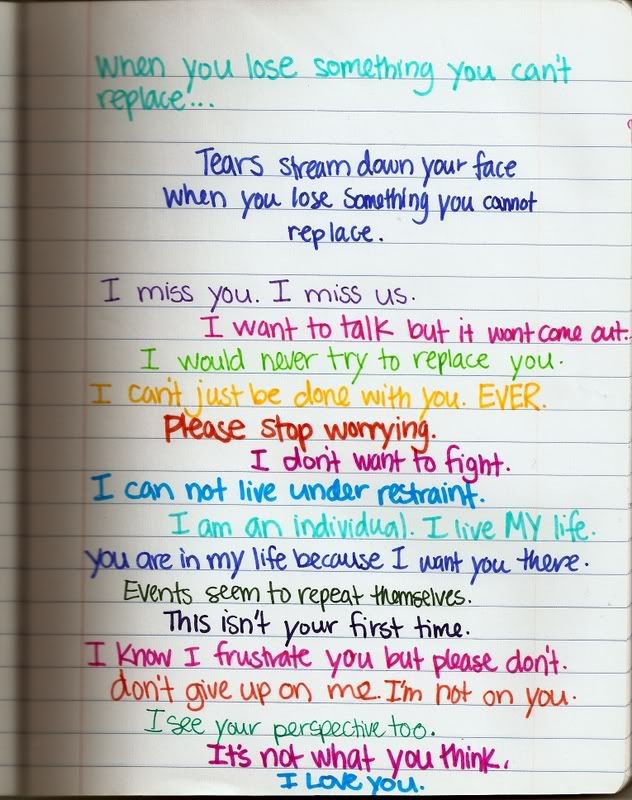 when you lose something you can't
replace...
Tears stream down your face
when you lose something you cannot
replace.
I miss you. I miss us.
I want to talk but it wont come out.
I would never try to replace you.
I can't just be done with you. EVER.
Please stop worrying.
I don't want to fight.
I can not live under restraint.
I am an individual. I live MY life.
you are in my life because I want you there.
Events seem to repeat themselves.
This isn't your first time.
I know I frustrate you but please don't.
don't give up on me. I'm not on you.
I see your perspective too.
It's not what you think.
I LOVE YOU.